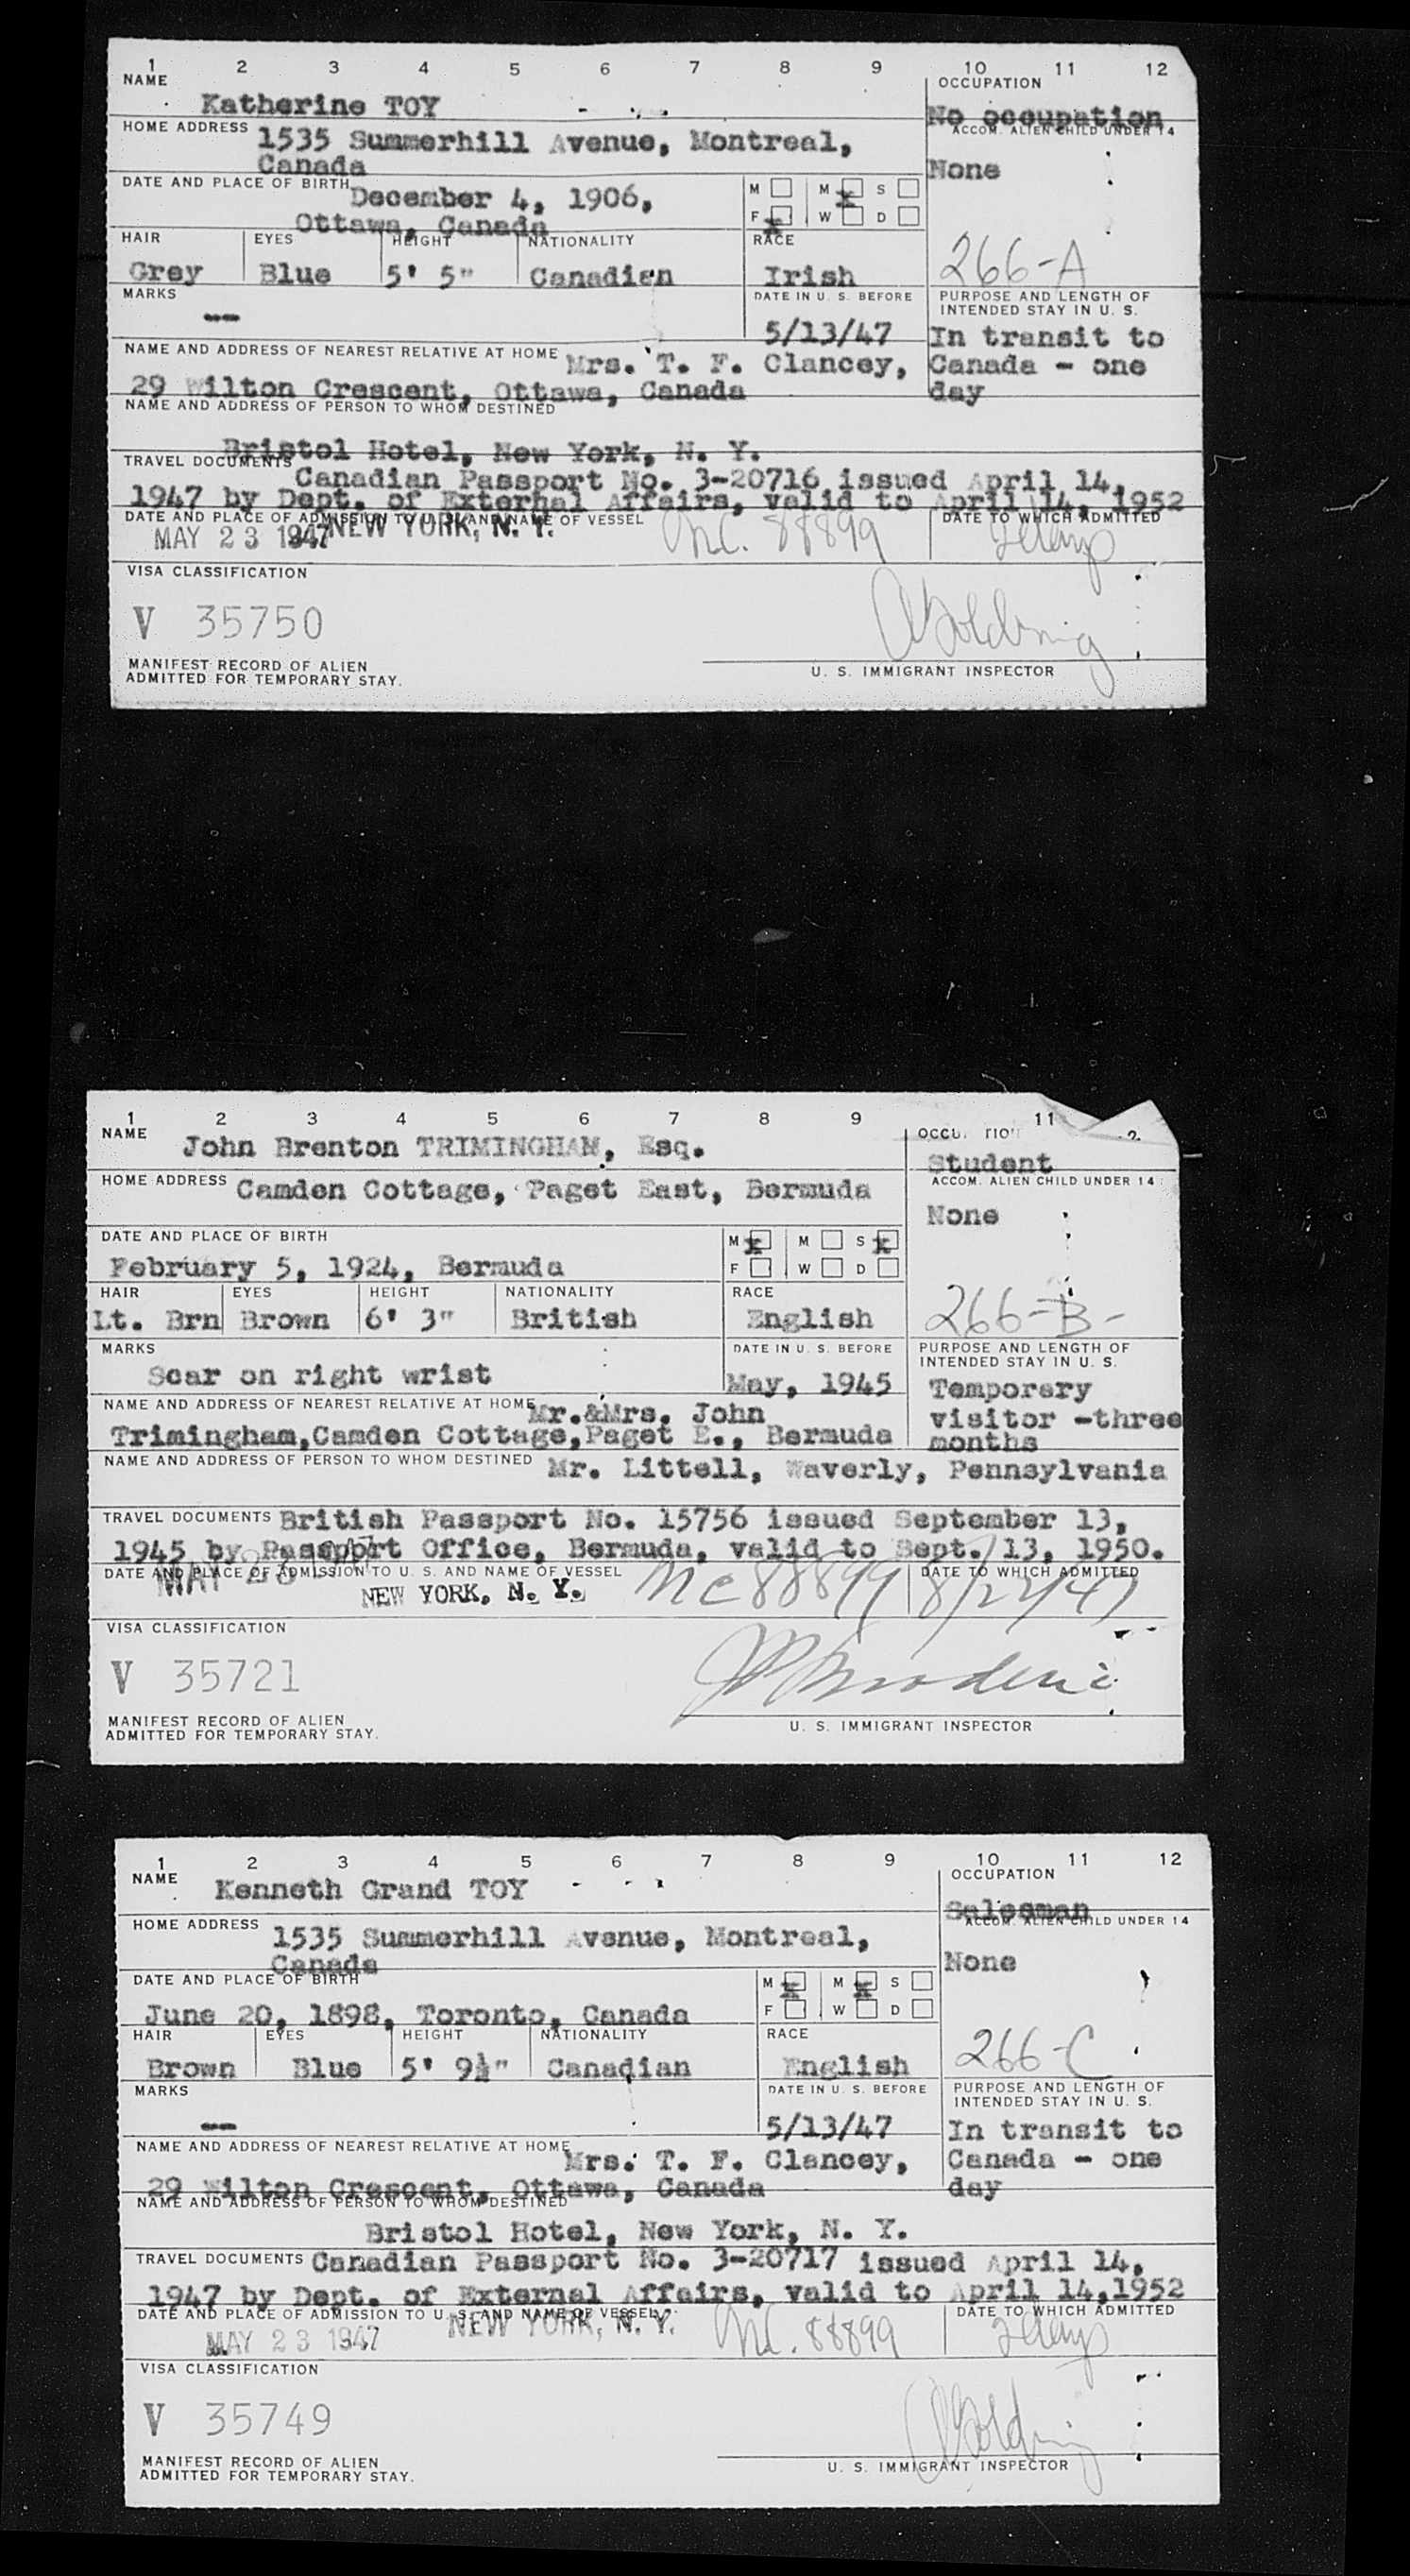 1 2 3 4 5 6 7 8 9 10 11 12
NAME OCCUPATION
Katherine TOY No occupation
HOME ADDRESS ACCOM. ALIEN CHILD UNDER 14
1535 Summerhill Avenue, Montreal,
Canada None
DATE AND PLACE OF BIRTH
December 4, 1906, M M x S
Ottawa, Canada F x W D
HAIR EYES HEIGHT NATIONALITY RACE
Grey Blue 5' 5" Canadian Irish 266-A
MARKS DATE IN U. S. BEFORE PURPOSE AND LENGTH OF
INTENDED STAY IN U. S.
-- 5/13/47 In transit to
NAME AND ADDRESS OF NEAREST RELATIVE AT HOME Mrs. T. F. Clancey, Canada - one
29 Wilton Crescent, Ottawa, Canada day
NAME AND ADDRESS OF PERSON TO WHOM DESTINED
Bristol Hotel, New York, N. Y.
TRAVEL DOCUMENTS Canadian Passport No. 3-20716 issued April 14,
1947 by Dept. of External Affairs, valid to April 14, 1952
DATE AND PLACE OF ADMISSION TO U. S. AND NAME OF VESSEL DATE TO WHICH ADMITTED
MAY 23 1947 NEW YORK, N. Y. NC. 88899
VISA CLASSIFICATION
V 35750
MANIFEST RECORD OF ALIEN
ADMITTED FOR TEMPORARY STAY. U. S. IMMIGRANT INSPECTOR
1 2 3 4 5 6 7 8 9 11
NAME
John Brenton TRIMINGHAM, Esq. Student
HOME ADDRESS Camden Cottage, Paget East, Bermuda ACCOM. ALIEN CHILD UNDER 14
None
DATE AND PLACE OF BIRTH M x M S x
February 5, 1924, Bermuda F W D
HAIR EYES HEIGHT NATIONALITY RACE
Lt. Brn Brown 6' 3" British English 266-B-
MARKS DATE IN U. S. BEFORE PURPOSE AND LENGTH OF
INTENDED STAY IN U. S.
Scar on right wrist May, 1945 Temporary
NAME AND ADDRESS OF NEAREST RELATIVE AT HOME Mr.&Mrs. John visitor -three
Trimingham,Camden Cottage,Paget E., Bermuda months
NAME AND ADDRESS OF PERSON TO WHOM DESTINED Mr. Littell, Waverly, Pennsylvania
TRAVEL DOCUMENTS British Passport No. 15756 issued September 13,
1945 by Passport Office, Bermuda, valid to Sept. 13, 1950.
DATE AND PLACE OF ADMISSION TO U. S. AND NAME OF VESSEL DATE TO WHICH ADMITTED
MAY 23 1947 NEW YORK, N. Y. NC 88899 8/22/47
VISA CLASSIFICATION
V 35721
MANIFEST RECORD OF ALIEN
ADMITTED FOR TEMPORARY STAY. U. S. IMMIGRANT INSPECTOR
1 2 3 4 5 6 7 8 9 10 11 12
NAME OCCUPATION
Kenneth Grand TOY Salesman
HOME ADDRESS ACCOM. ALIEN CHILD UNDER 14
1535 Summerhill Avenue, Montreal,
Canada None
DATE AND PLACE OF BIRTH M x M x S
June 20, 1898, Toronto, Canada F W D
HAIR EYES HEIGHT NATIONALITY RACE
Brown Blue 5' 9½" Canadian English 266-C
MARKS DATE IN U. S. BEFORE PURPOSE AND LENGTH OF
INTENDED STAY IN U. S.
-- 5/13/47 In transit to
NAME AND ADDRESS OF NEAREST RELATIVE AT HOME Mrs. T. F. Clancey, Canada - one
29 Wilton Crescent, Ottawa, Canada day
NAME AND ADDRESS OF PERSON TO WHOM DESTINED
Bristol Hotel, New York, N. Y.
TRAVEL DOCUMENTS Canadian Passport No. 3-20717 issued April 14,
1947 by Dept. of External Affairs, valid to April 14,1952
DATE AND PLACE OF ADMISSION TO U. S. AND NAME OF VESSEL DATE TO WHICH ADMITTED
MAY 23 1947 NEW YORK, N. Y. NC. 88899
VISA CLASSIFICATION
V 35749
MANIFEST RECORD OF ALIEN
ADMITTED FOR TEMPORARY STAY. U. S. IMMIGRANT INSPECTOR